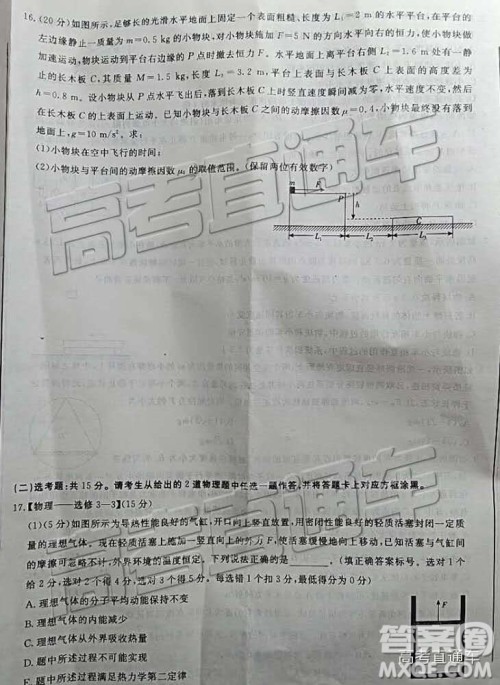 16.(20分)如图所示,足够长的光滑水平地面上固定一个表面粗糙、长度为L₁=2 m的水平平台,在平台的
左边缘静止一质量为m=0.5 kg的小物块,对小物块施加F=5 N的方向水平向右的恒力,使小物块做匀
加速运动,物块运动到平台右边缘的P点时撤去恒力F。水平地面上离平台右侧L₂=1.6 m处有一静
止的长木板C,其质量M=1.5 kg,长度L₃=3.2 m,平台表面与长木板C的上表面的高度差为
h=0.8 m。设小物块从P点水平飞出后,落到长木板C上时竖直速度瞬间减为零,水平速度不变,并开始
在长木板C的上表面上运动。已知小物块与长木板C之间的动摩擦因数μ=0.4,小物块最终没有落到
地面上,g=10 m/s²。求:
(1)小物块在空中飞行的时间;
(2)小物块与平台间的动摩擦因数μ₀的取值范围。(保留两位有效数字)
m
F
P
h
C
L₁
L₂
L₃
高考直通车
(二)选考题:共15分。请考生从给出的2道物理题中任选一题作答,并将答题卡上对应方框涂黑。
17.【物理——选修3—3】(15分)
(1)(5分)如图所示为导热性能良好的气缸,开口向上,内用密闭性能良好的轻质活塞密封一定质
量的理想气体。现在轻质活塞上施加一竖直向上的力F,使活塞缓慢地向上移动,已知活塞与气缸间
的摩擦可忽略不计,外界环境的温度恒定。下列说法正确的是
。(填正确答案标号。选对1个
给2分,选对2个得4分,选对3个得5分。每选错1个扣3分,最低得分为0分)
A.理想气体的分子平均动能保持不变
B.理想气体的内能减少
C.理想气体从外界吸收热量
D.题中所述过程不可能实现
E.题中所述过程满足热力学第二定律
F
高考直通车
答案圈